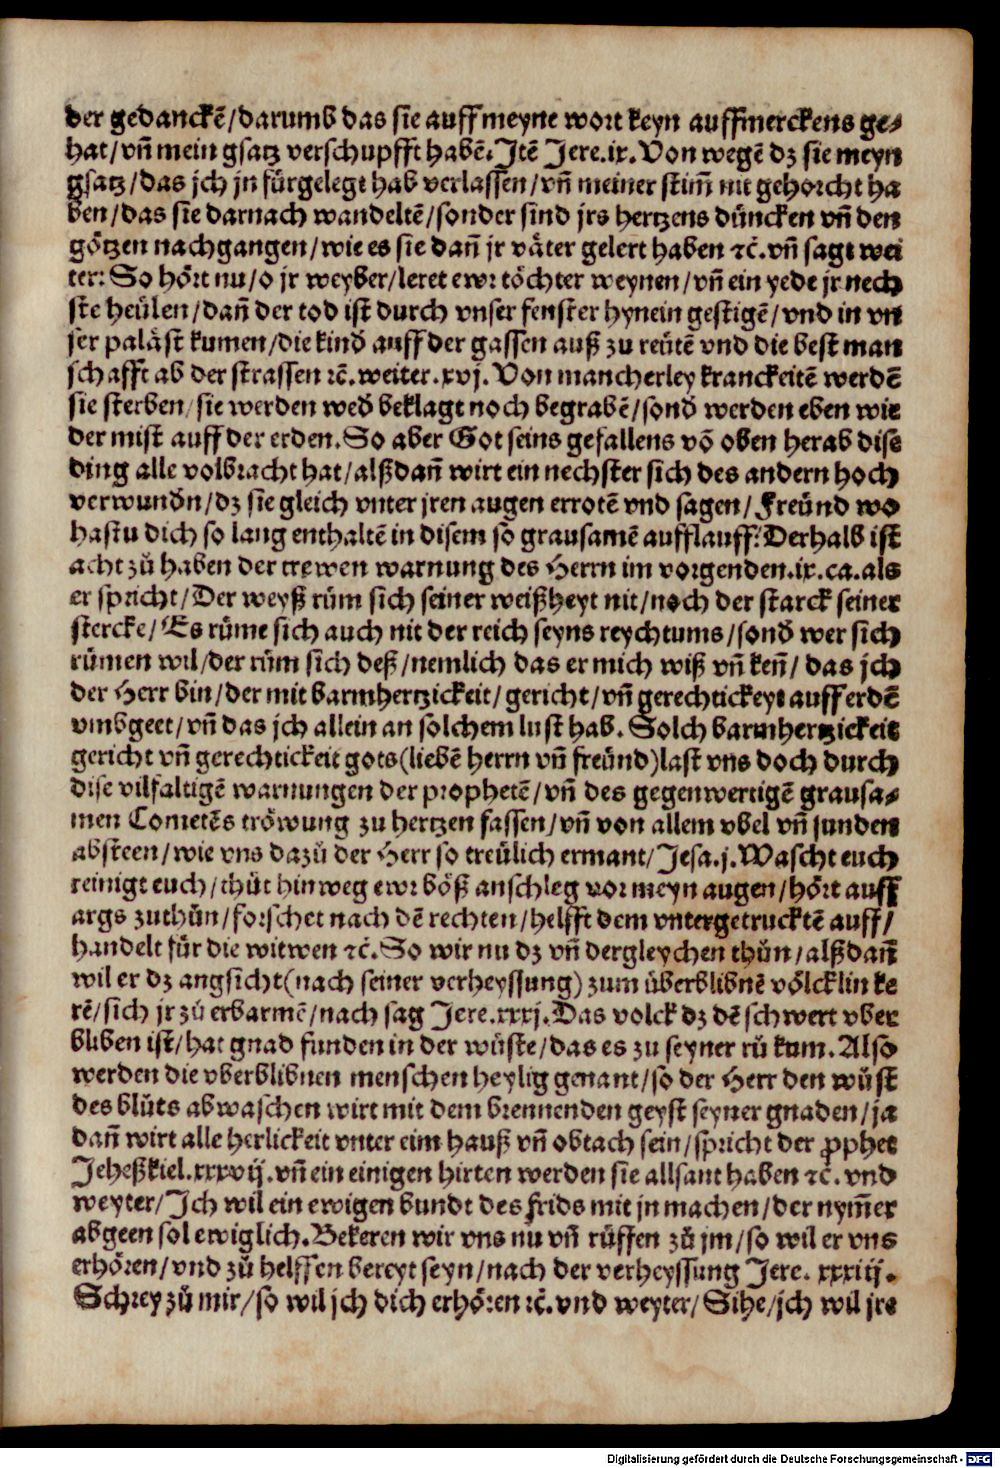 der gedanckē/darumb das sie auff meyne wort keyn auffmerckens ge⸗
hat/vñ mein gsatz verschupfft habē. Jtē Jere.ix. Von wegē dz sie meyn
gsatz/das jch jn fürgelegt hab verlassen/vñ meiner stim̃ nit gehorcht ha
ben/das sie darnach wandeltē/sonder sind jrs hertzens düncken vñ den
götzen nachgangen/wie es sie dañ jr väter gelert haben ⁊c̄. vñ sagt wei
ter: So hört nu/o jr weyber/leret ewr töchter weynen/vñ ein yede jr nech
ste heülen/dañ der tod ist durch vnser fenster hynein gestigē/vnd in vn
ser paläst kumen/die kind auff der gassen auß zu reütē vnd die best man
schafft ab der strassen ⁊c̄. weiter .xvj. Von mancherley kranckeitē werdē
sie sterben/sie werden wed̄ beklagt noch begrabē/sond̄ werden eben wie
der mist auff der erden. So aber Got seins gefallens vō oben herab dise
ding alle volbracht hat/alßdañ wirt ein nechster sich des andern hoch
verwund̄n/dz sie gleich vnter jren augen errotē vnd sagen/Freünd wo
hastu dich so lang enthaltē in disem so grausamē aufflauff? Derhalb ist
acht zů haben der trewen warnung des Herrn im vorgenden .ix.ca. als
er spricht/Der weyß rům sich seiner weißheyt nit/noch der starck seiner
stercke/Es růme sich auch nit der reich seyns reychtums/sond̄ wer sich
růmen wil/der rům sich deß/nemlich das er mich wiß vñ keñ/das jch
der Herr bin/der mit barmhertzickeit/gericht/vñ gerechtickeyt auff erdē
vmbgeet/vñ das jch allein an solchem lust hab. Solch barmhertzickeit
gericht vñ gerechtickeit gots(liebē herrn vñ freünd)last vns doch durch
dise vilfaltigē warnungen der prophetē/vñ des gegenwertigē grausa⸗
men Cometēs tröwung zu hertzen fassen/vñ von allem vbel vñ sunden
absteen/wie vns dazů der Herr so treülich ermant/Jesa.j. Wascht euch
reinigt euch/thůt hinweg ewr böß anschleg vor meyn augen/hört auff
args zuthůn/forschet nach dē rechten/helfft dem vntergetrucktē auff/
handelt für die witwen ⁊c̄. So wir nu dz vñ dergleychen thůn/alßdañ
wil er dz angsicht(nach seiner verheyssung)zum überblibnē völcklin ke
rē/sich jr zů erbarmē/nach sag Jere.xxxj. Das volck dz dē schwert vber
bliben ist/hat gnad funden in der wüste/das es zu seyner rů kum. Also
werden die vberblibnen menschen heylig genant/so der Herr den wůst
des blůts abwaschen wirt mit dem brennenden geyst seyner gnaden/ja
dañ wirt alle herlickeit vnter eim hauß vñ obtach sein/spricht der ꝓphet
Jeheßkiel.xxxvij. vñ ein einigen hirten werden sie allsant haben ⁊c̄. vnd
weyter/Jch wil ein ewigen bundt des frids mit jn machen/der nym̃er
abgeen sol ewiglich. Bekeren wir vns nu vñ růffen zů jm/so wil er vns
erhören/vnd zů helffen bereyt seyn/nach der verheyssung Jere. xxxiij.
Schrey zů mir/so wil jch dich erhören ⁊c̄. vnd weyter/Sihe/jch wil jre
Digitalisierung gefördert durch die Deutsche Forschungsgemeinschaft - DFG